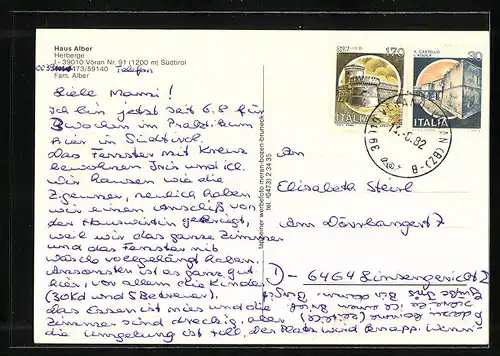 Haus Alber
Herberge
I - 39010 Vöran Nr. 91 (1200 m) Südtirol
0473/59140 Telefon
Fam. Alber
Liebe Mami!
Ich bin jetzt seit 6.8 für
3 Wochen im Praktikum
hier in Südtirol.
Das Fenster mit Kreuz
bewohnen Iris und ich.
Wir hausen wie die
Zigeuner, neulich haben
wir einen Anschiß von
der Hauswirtin gekriegt,
weil wir das ganze Zimmer
und das Fenster mit
Wäsche vollgehängt haben.
Ansonsten ist es ganz gut
hier, vor allem die Kinder
(30 Kd und 5 Betreuer).
Das Essen ist mies und die
Zimmer sind dreckig, aber
die Umgebung ist toll. Der Platz wird knapp. Wenn
tappeiner werbefoto meran-bozen-bruneck
tel. (0473) 2 34 35
170
ITALIA
30
ITALIA
39010
(BZ)
8-82
An
Elisabeth Steirl
Am Dörrhangert 7
D - 6464 Linsengericht 2